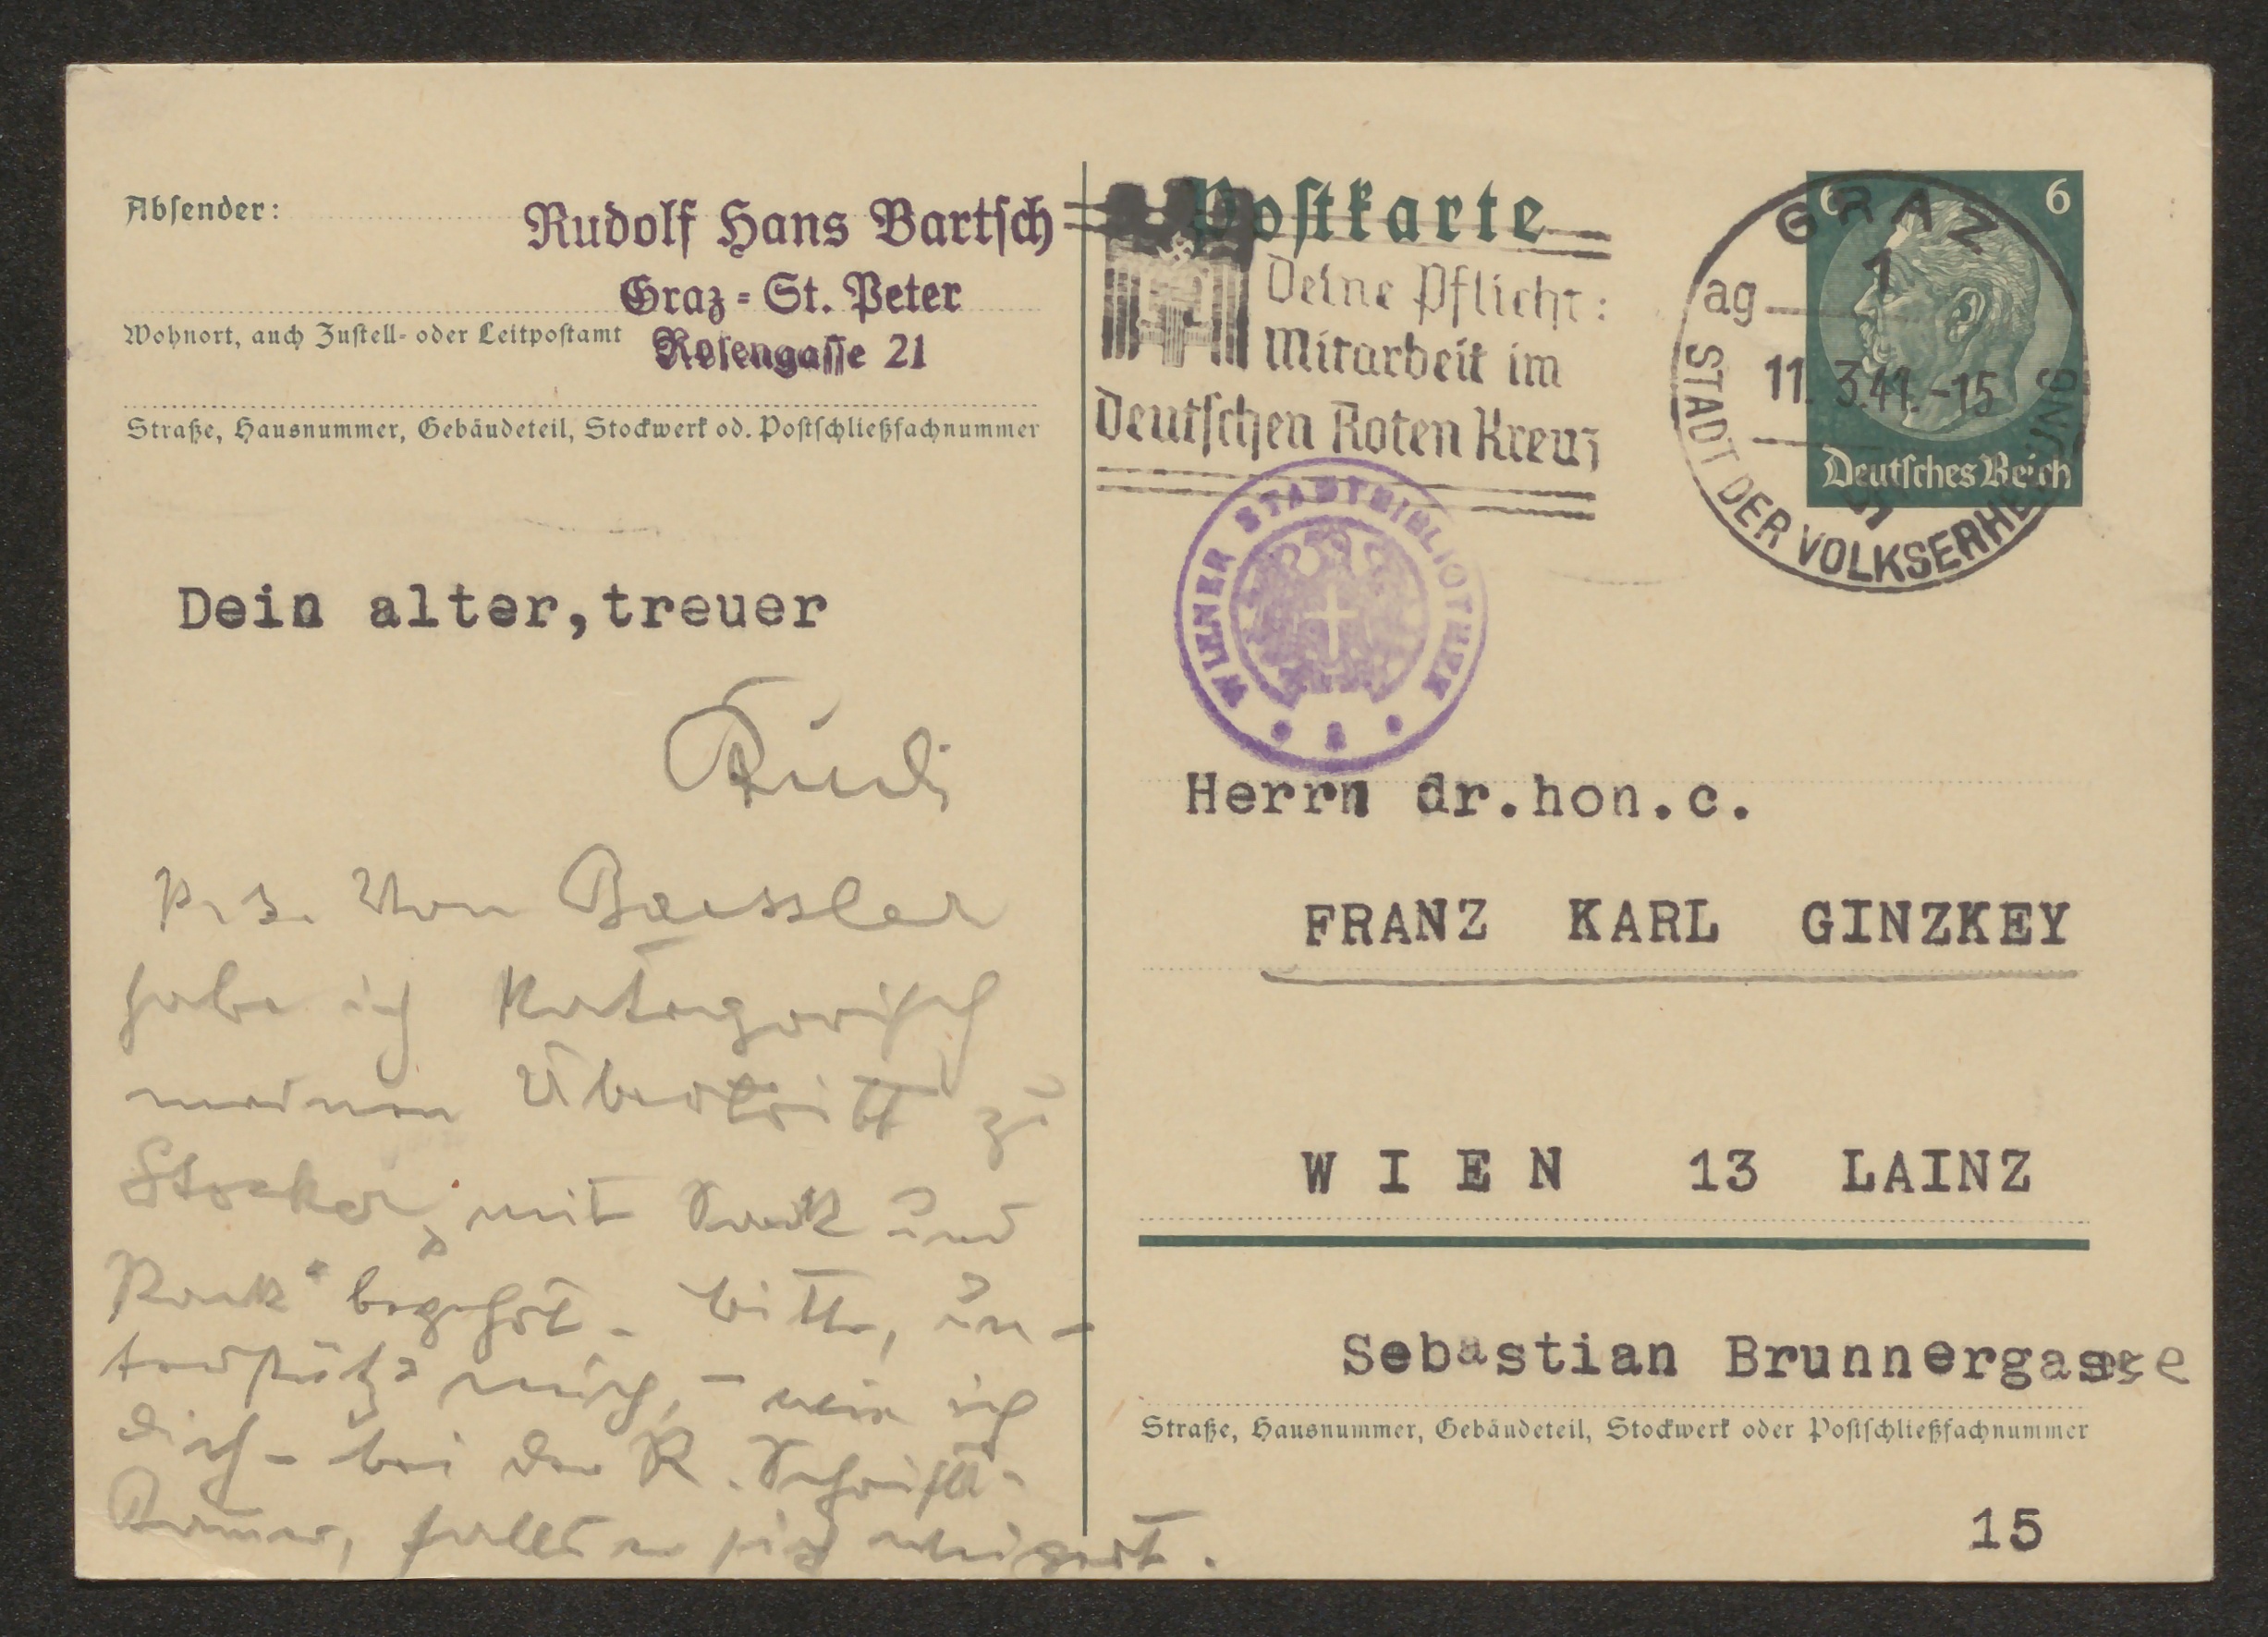 Absender:
Rudolf Hans Bartsch
Graz-St. Peter
Wohnort, auch Zustell- oder Leitpostamt
Rosengasse 21
Straße, Hausnummer, Gebäudeteil, Stockwerk od. Postschließfachnummer
Dein alter,treuer
Rudi
P. S. Von Baessler
habe ich kategorisch
meinen Übertritt zu
Stocker, mit Sack und
Pack" begehrt. Bitte, un-
terstütze mich, - wie ich
Dich - bei der R. Schriftt.
Kammer, falls er sich weigert.
Postkarte
Deine Pflicht:
Mitarbeit im
Deutschen Roten Kreuz
GRAZ
1
ag
11.3.41.-15
STADT DER VOLKSERHEBUNG
6 6
Deutsches Reich
WIENER STADTBIBLIOTHEK
Herrn dr.hon.c.
FRANZ KARL GINZKEY
WIEN 13 LAINZ
Sebastian Brunnergasse
Straße, Hausnummer, Gebäudeteil, Stockwerk oder Postschließfachnummer
15